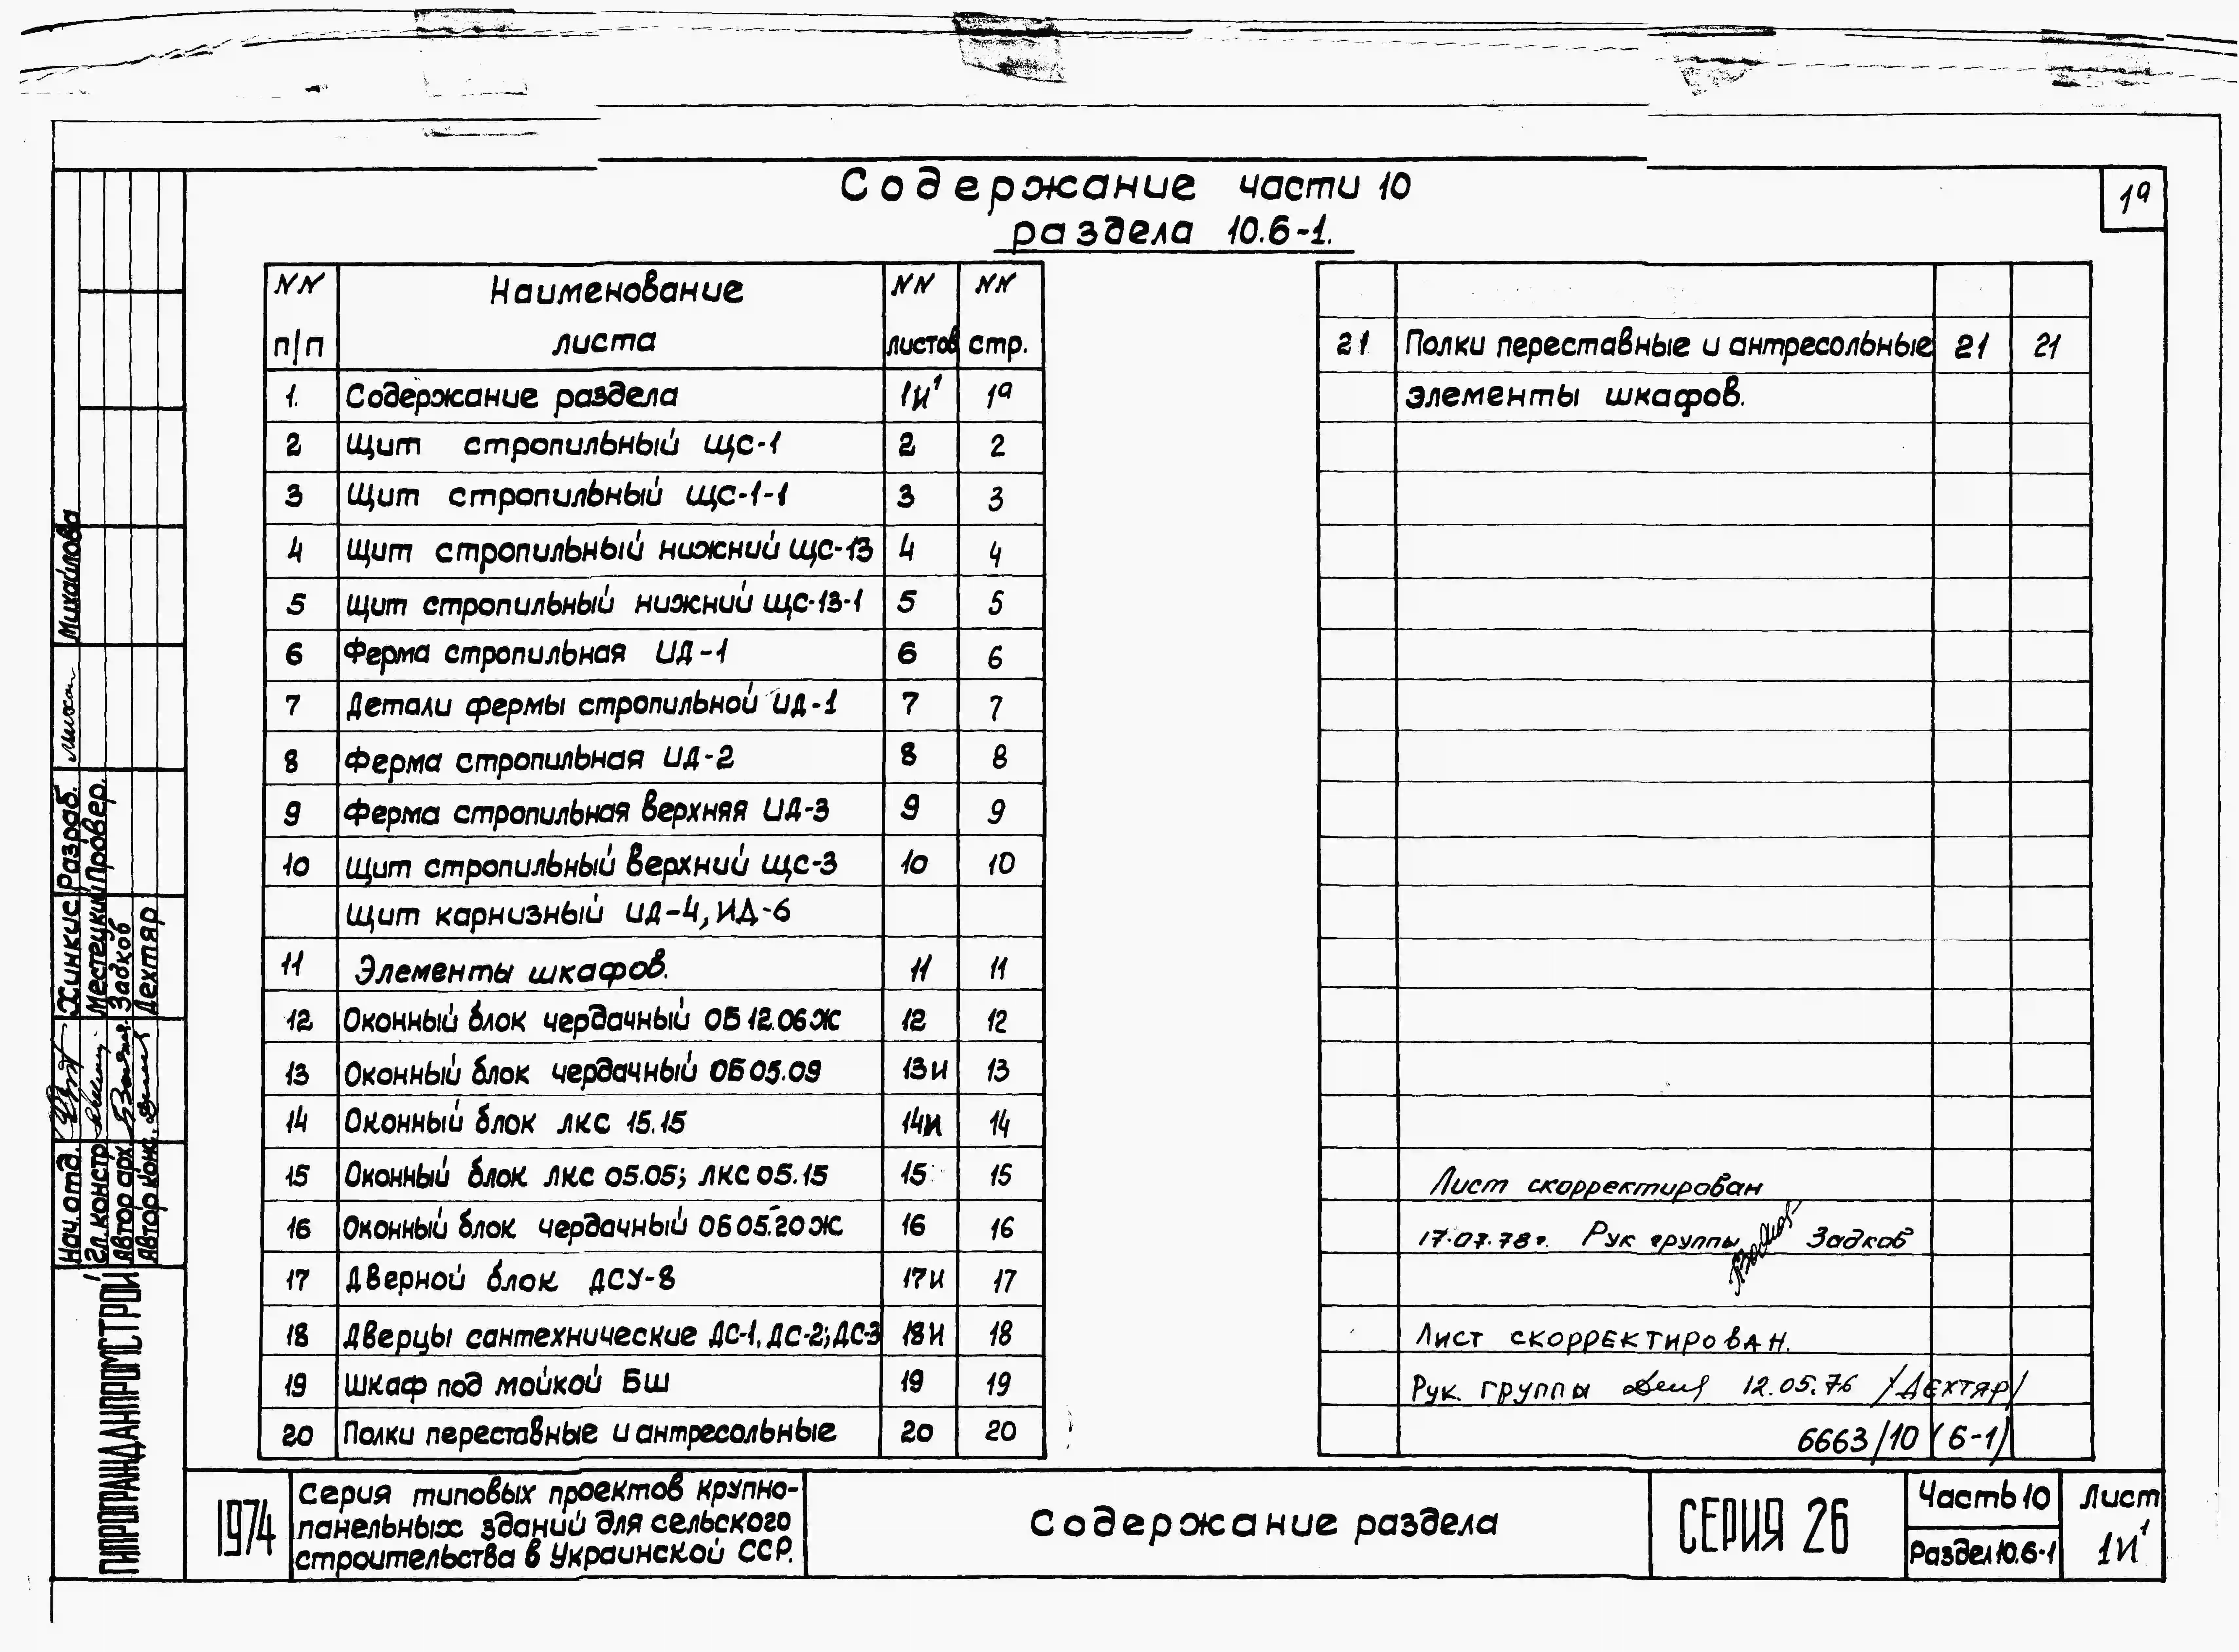 Содержание части 10
раздела 10.6-1.
1а
NN п/п Наименование листа NN листов NN стр.
1. Содержание раздела 1И¹ 1а
2 Щит стропильный ЩС-1 2 2
3 Щит стропильный ЩС-1-1 3 3
4 Щит стропильный нижний ЩС-13 4 4
5 Щит стропильный нижний ЩС-13-1 5 5
6 Ферма стропильная ИД-1 6 6
7 Детали фермы стропильной ИД-1 7 7
8 Ферма стропильная ИД-2 8 8
9 Ферма стропильная верхняя ИД-3 9 9
10 Щит стропильный верхний ЩС-3 10 10
Щит карнизный ИД-4, ИД-6
11 Элементы шкафов. 11 11
12 Оконный блок чердачный ОБ 12.06Ж 12 12
13 Оконный блок чердачный ОБ 05.09 13И 13
14 Оконный блок ЛКС 15.15 14И 14
15 Оконный блок ЛКС 05.05; ЛКС 05.15 15 15
16 Оконный блок чердачный ОБ 05.20Ж 16 16
17 Дверной блок ДСУ-8 17И 17
18 Дверцы сантехнические ДС-1, ДС-2; ДС-3 18И 18
19 Шкаф под мойкой БШ 19 19
20 Полки переставные и антресольные 20 20
21 Полки переставные и антресольные 21 21
элементы шкафов.
Лист скорректирован
17.07.78г. Рук группы Задков
Лист скорректирован.
Рук. группы 12.05.76 /Дехтяр/
6663/10 (6-1)
Михайлова
Хинкис Разраб.
Местецкий Провер.
Задков
Дехтяр
Нач. отд.
Гл. констр
Автор арх.
Автор конс.
ГИПРОГРАЖДАНПРОМСТРОЙ
1974
Серия типовых проектов крупно-
панельных зданий для сельского
строительства в Украинской ССР.
Содержание раздела
СЕРИЯ 26
Часть 10
Раздел 10.6-1
Лист
1И¹